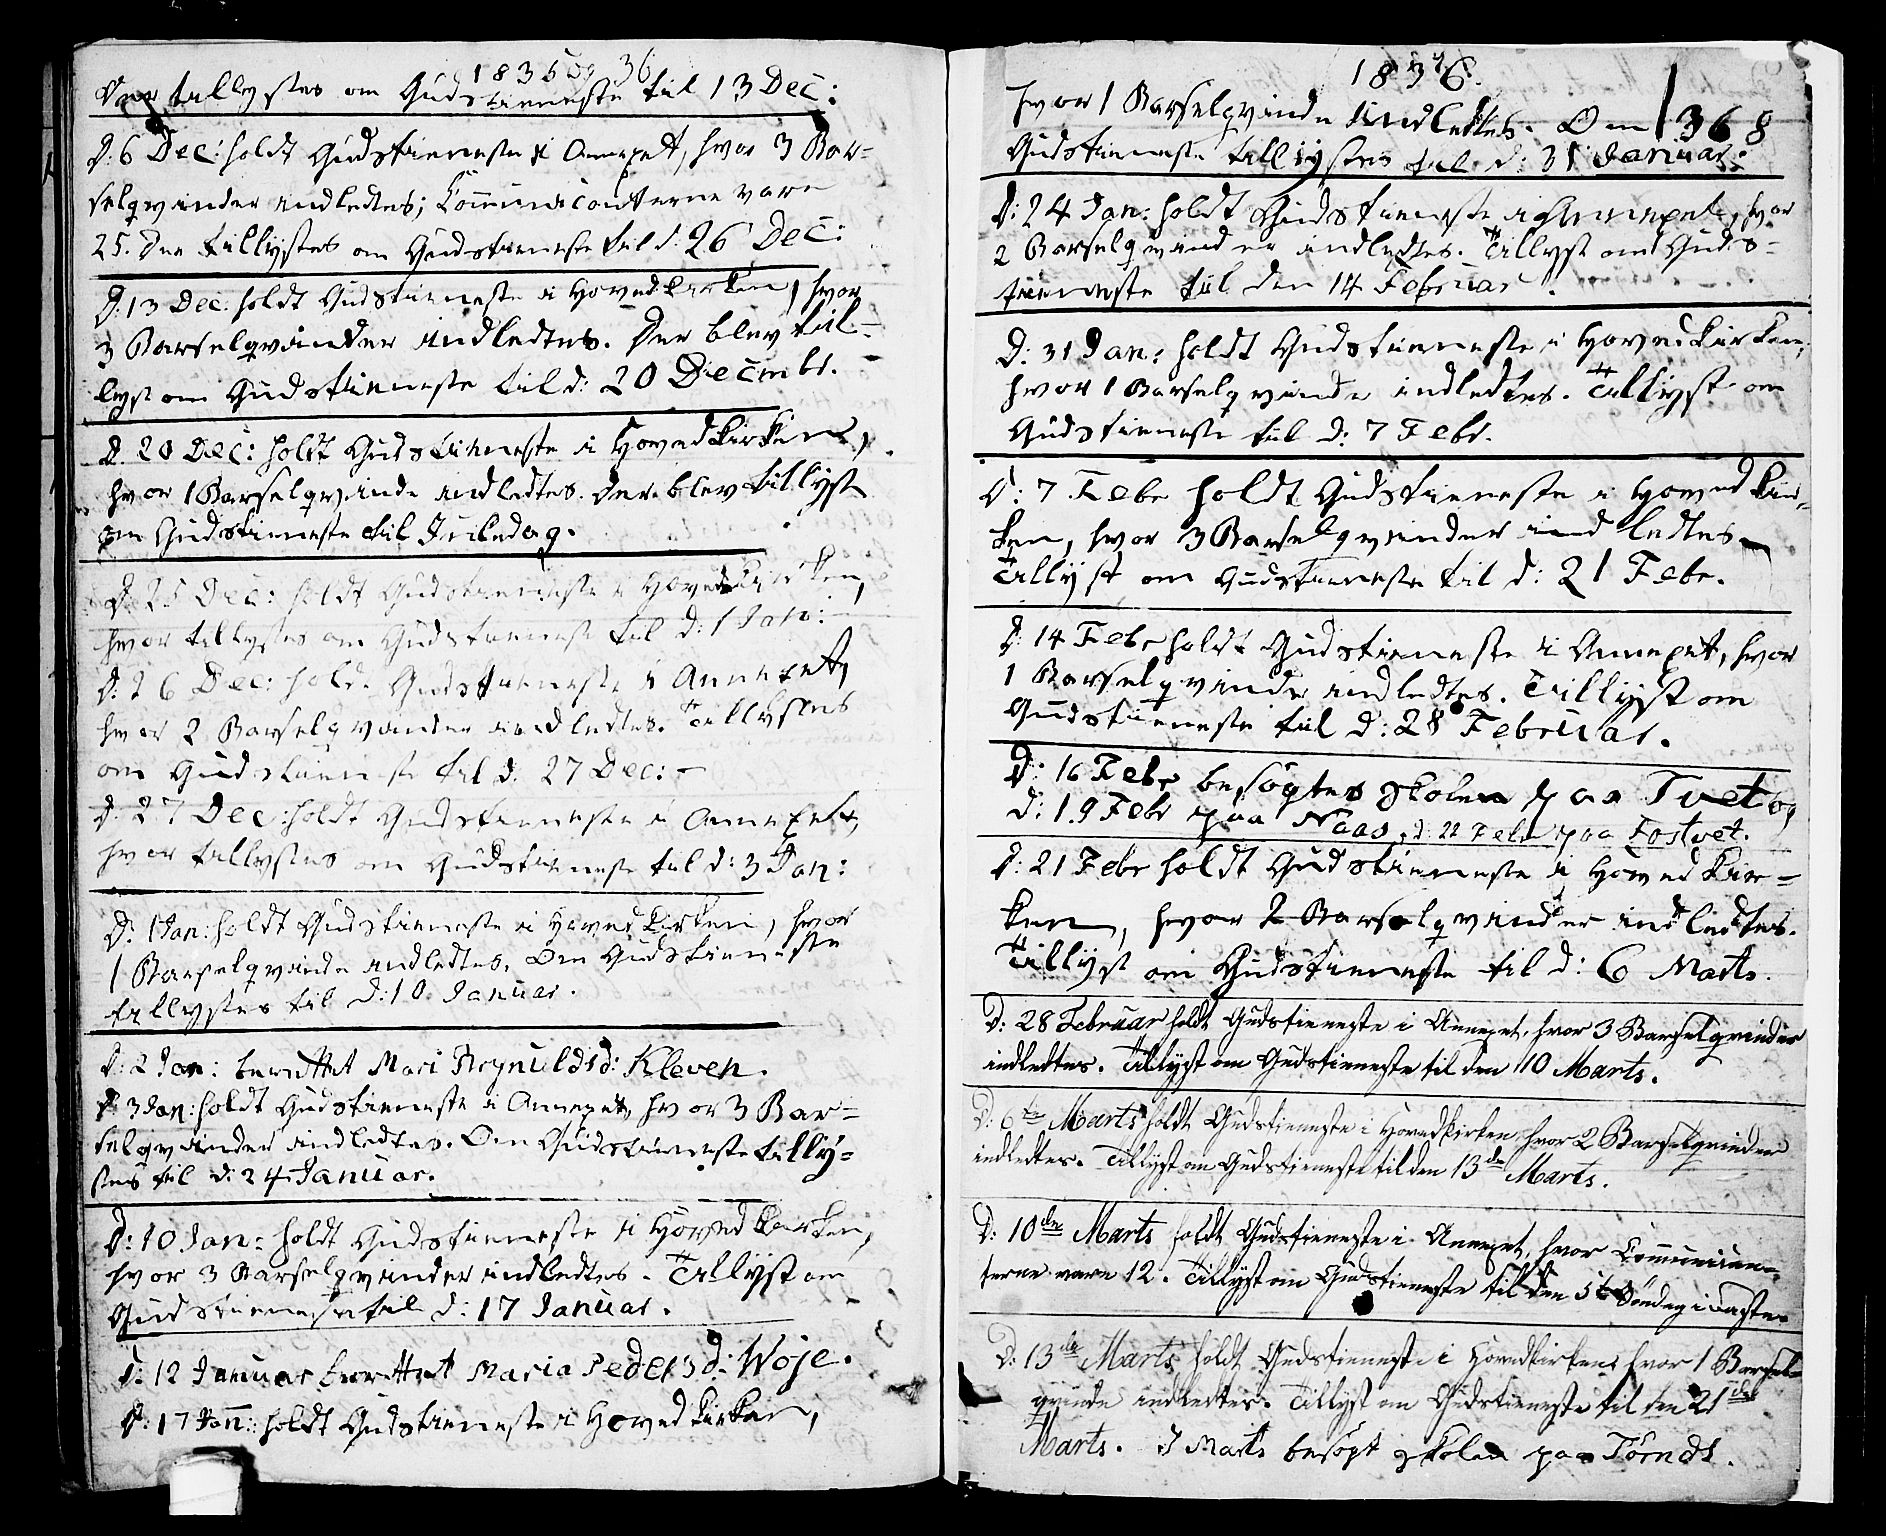 1835 og 36
Der tillystes om Gudstieneste til 13 Dec:
D: 6 Dec: holdt Gudstieneste i Annexet, hvor 3 Bar-
selqvinder indledtes; Communicanterne vare
25. Der tillystes om Gudstieneste til d: 26 Dec:
D: 13 Dec: holdt Gudstieneste i Hovedkirken, hvor
3 Barselqvinder indledtes. Der blev til-
lyst om Gudstieneste til d: 20 Decembr.
D. 20 Dec: holdt Gudstieneste i Hovedkirken,
hvor 1 Barselqvinde indledtes. Der blev tillyst
om Gudstieneste til Juledag.
D: 25 Dec: holdt Gudstieneste i Hovedkirken,
hvor tillystes om Gudstieneste til d: 1 Jan:
D: 26 Dec: holdt Gudstieneste i Annexet,
hvor 2 Barselqvinder indledtes. Tillystes
om Gudstieneste til d. 27 Dec: -
D: 27 Dec: holdt Gudstieneste i Annexet,
hvor tillystes om Gudstieneste til d: 3 Jan:
D: 1 Jan: holdt Gudstieneste i Hovedkirken, hvor
1 Barselqvinde indledtes. Om Gudstieneste
tillystes til d: 10 Januar.
D: 2 Jan: berettet Mari Reynuldsd: Kleven.
D: 3 Jan: holdt Gudstieneste i Annexet, hvor 3 Bar-
selqvinder indledtes. Om Gudstieneste tilly-
stes til d: 24 Januar.
D: 10 Jan: holdt Gudstieneste i Hovedkirken,
hvor 3 Barselqvinder indledtes. Tillyst om
Gudstieneste til d: 17 Januar.
D: 12 Januar berettet Maria Pedersd: Woje.
D: 17 Jan: holdt Gudstieneste i Hovedkirken,
1836.
hvor 1 Barselqvinde indledtes. Om
368
Gudstieneste tillystes til d: 31 Januar.
D: 24 Jan: holdt Gudstieneste i Annexet, hvor
2 Barselqvinder indledtes. Tillyst om Guds-
tieneste til den 14 Februar.
D: 31 Jan: holdt Gudstieneste i Hovedkirken,
hvor 1 Barselqvinde indledtes. Tillyst om
Gudstieneste til d: 7 Febr.
D: 7 Febr holdt Gudstieneste i Hovedkir-
ken, hvor 3 Barselqvinder indledtes.
Tillyst om Gudstieneste til d: 21 Febr.
D: 14 Febr holdt Gudstieneste i Annexet, hvor
1 Barselqvinde indledtes. Tillyst om
Gudstieneste til d: 28 Februar.
D: 16 Febr besøgtes Skolen paa Tvet og
d: 19 Febr paa Naas, d: 22 Febr paa Fostvet.
D: 21 Febr holdt Gudstieneste i Hovedkir-
ken, hvor 2 Barselqvinder indledtes.
Tillyst om Gudstieneste til d: 6 Marts.
D: 28 Februar holdt Gudstieneste i Annexet, hvor 3 Barselqvinder
indledtes. Tillyst om Gudstieneste til den 10 Marts.
D: 6te Marts holdt Gudstieneste i Hovedkirken, hvor 2 Barselqvinder
indledtes. Tillyst om Gudstieneste til den 13de Marts.
D: 10de Marts holdt Gudstieneste i Annexet, hvor Communican-
terne vare 12. Tillyst om Gudstieneste til den 5te Søndag i Faste.
D: 13de Marts holdt Gudstieneste i Hovedkirken, hvor 1 Barsel-
qvinde indledtes. Tillyst om Gudstieneste til den 21de
Marts. 7 Marts besøgt Skolen paa Tørndl.